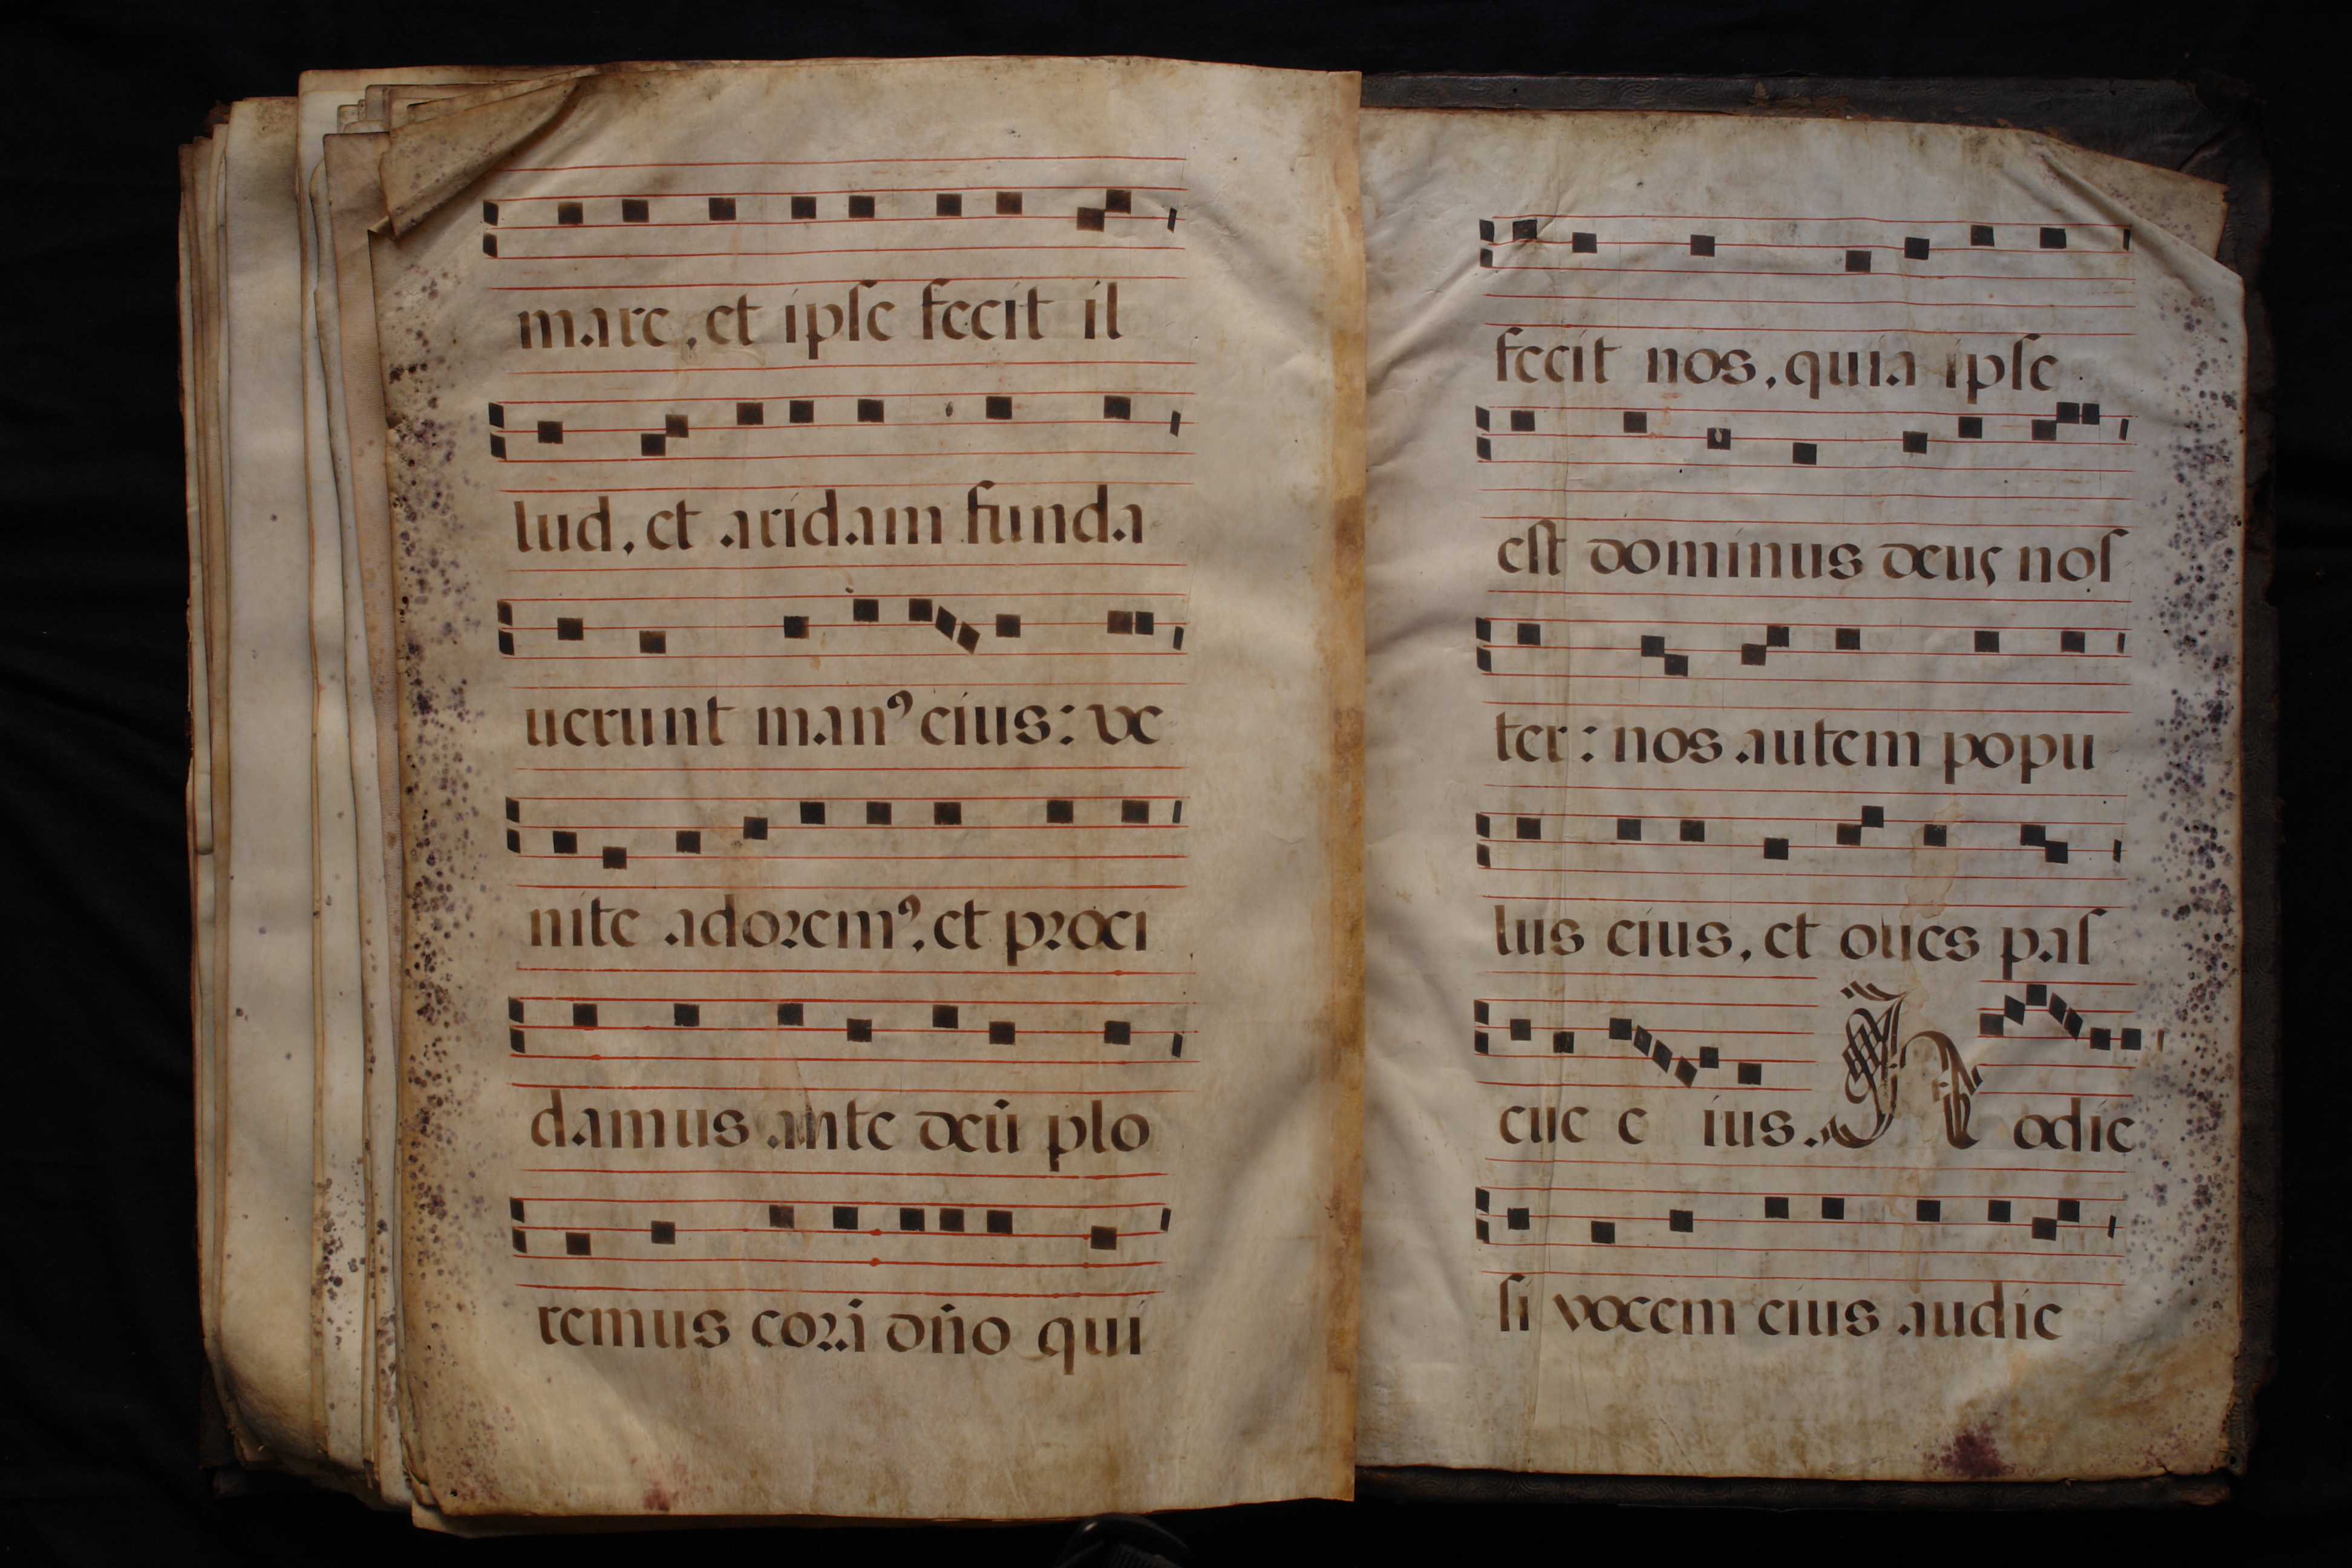 mare, et ipſe fecit il
lud, et aridam funda
uerunt manꝰ eius: ve
nite adoremꝰ, et proci
damus ante deū plo
remus corā dño qui
fecit nos, quia ipſe
eſt dominus deus noſ
ter: nos autem popu
lus eius, et oues paſ
cue e ius. Hodie
ſi vocem eius audie